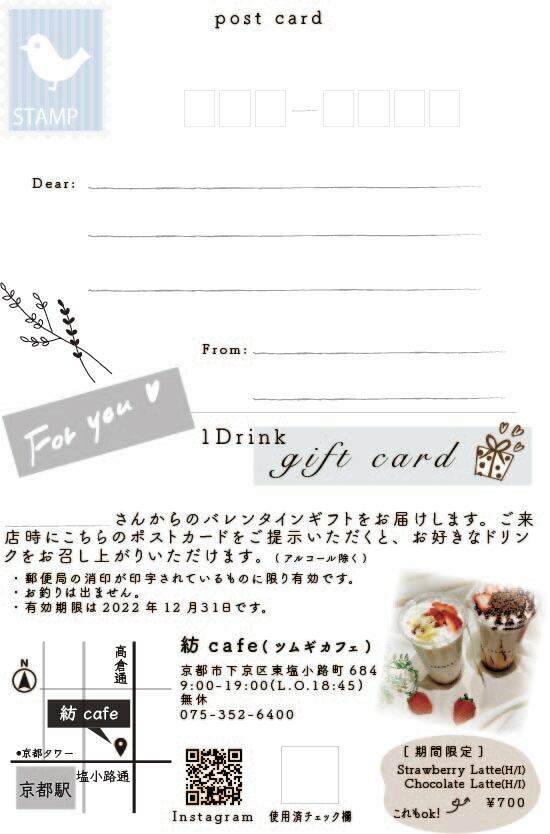 post card
STAMP
Dear:
From:
For you
1Drink
gift card
さんからのバレンタインギフトをお届けします。ご来
店時にこちらのポストカードをご提示いただくと、お好きなドリン
クをお召し上がりいただけます。(アルコール除く)
・郵便局の消印が印字されているものに限り有効です。
・お釣りは出ません。
・有効期限は2022年12月31日です。
紡 cafe(ツムギカフェ)
京都市下京区東塩小路町684
9:00-19:00(L.O.18:45)
無休
075-352-6400
N
高倉通
紡 cafe
•京都タワー
塩小路通
京都駅
Instagram
使用済チェック欄
[期間限定]
Strawberry Latte(H/I)
Chocolate Latte(H/I)
¥700
これもok!